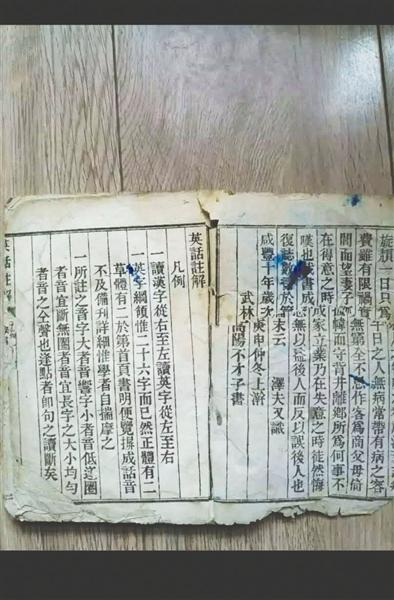 旋頭一日只為
千日之人無病常帶有病之容
費雖有限禍實無窮
不
作客為商父母倚
閭而望妻子
幃而守背井離鄉所為何事不
在得意之時
成家立業乃在失意之時徒然悔
嘆也哉書成
無以益後人而反以誤後人也
復誌數
於篇末云
澤夫又識
咸豐十年歲次庚申仲冬上澣
武林高陽不才子書
英話註解
凡例
一讀漢字從右至左讀英字從左至右
一英字綱領惟二十六字而已然正體有二
草體有二於第首頁書明便覽擇成話音
不及備刊詳細惟學者自揣摩之
一所註之音字大者音響字小者音低逐圈
者音宜斷無圈者音宜長字之大小均勻
者音之全聲也逢點者即句之讀斷矣
英話註解